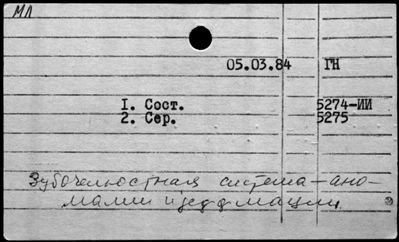 МЛ
05.03.84 ГН
I. Сост. 5274-ИИ
2. Сер. 5275
Зубочелюстная система - ано-
малии и деформации.